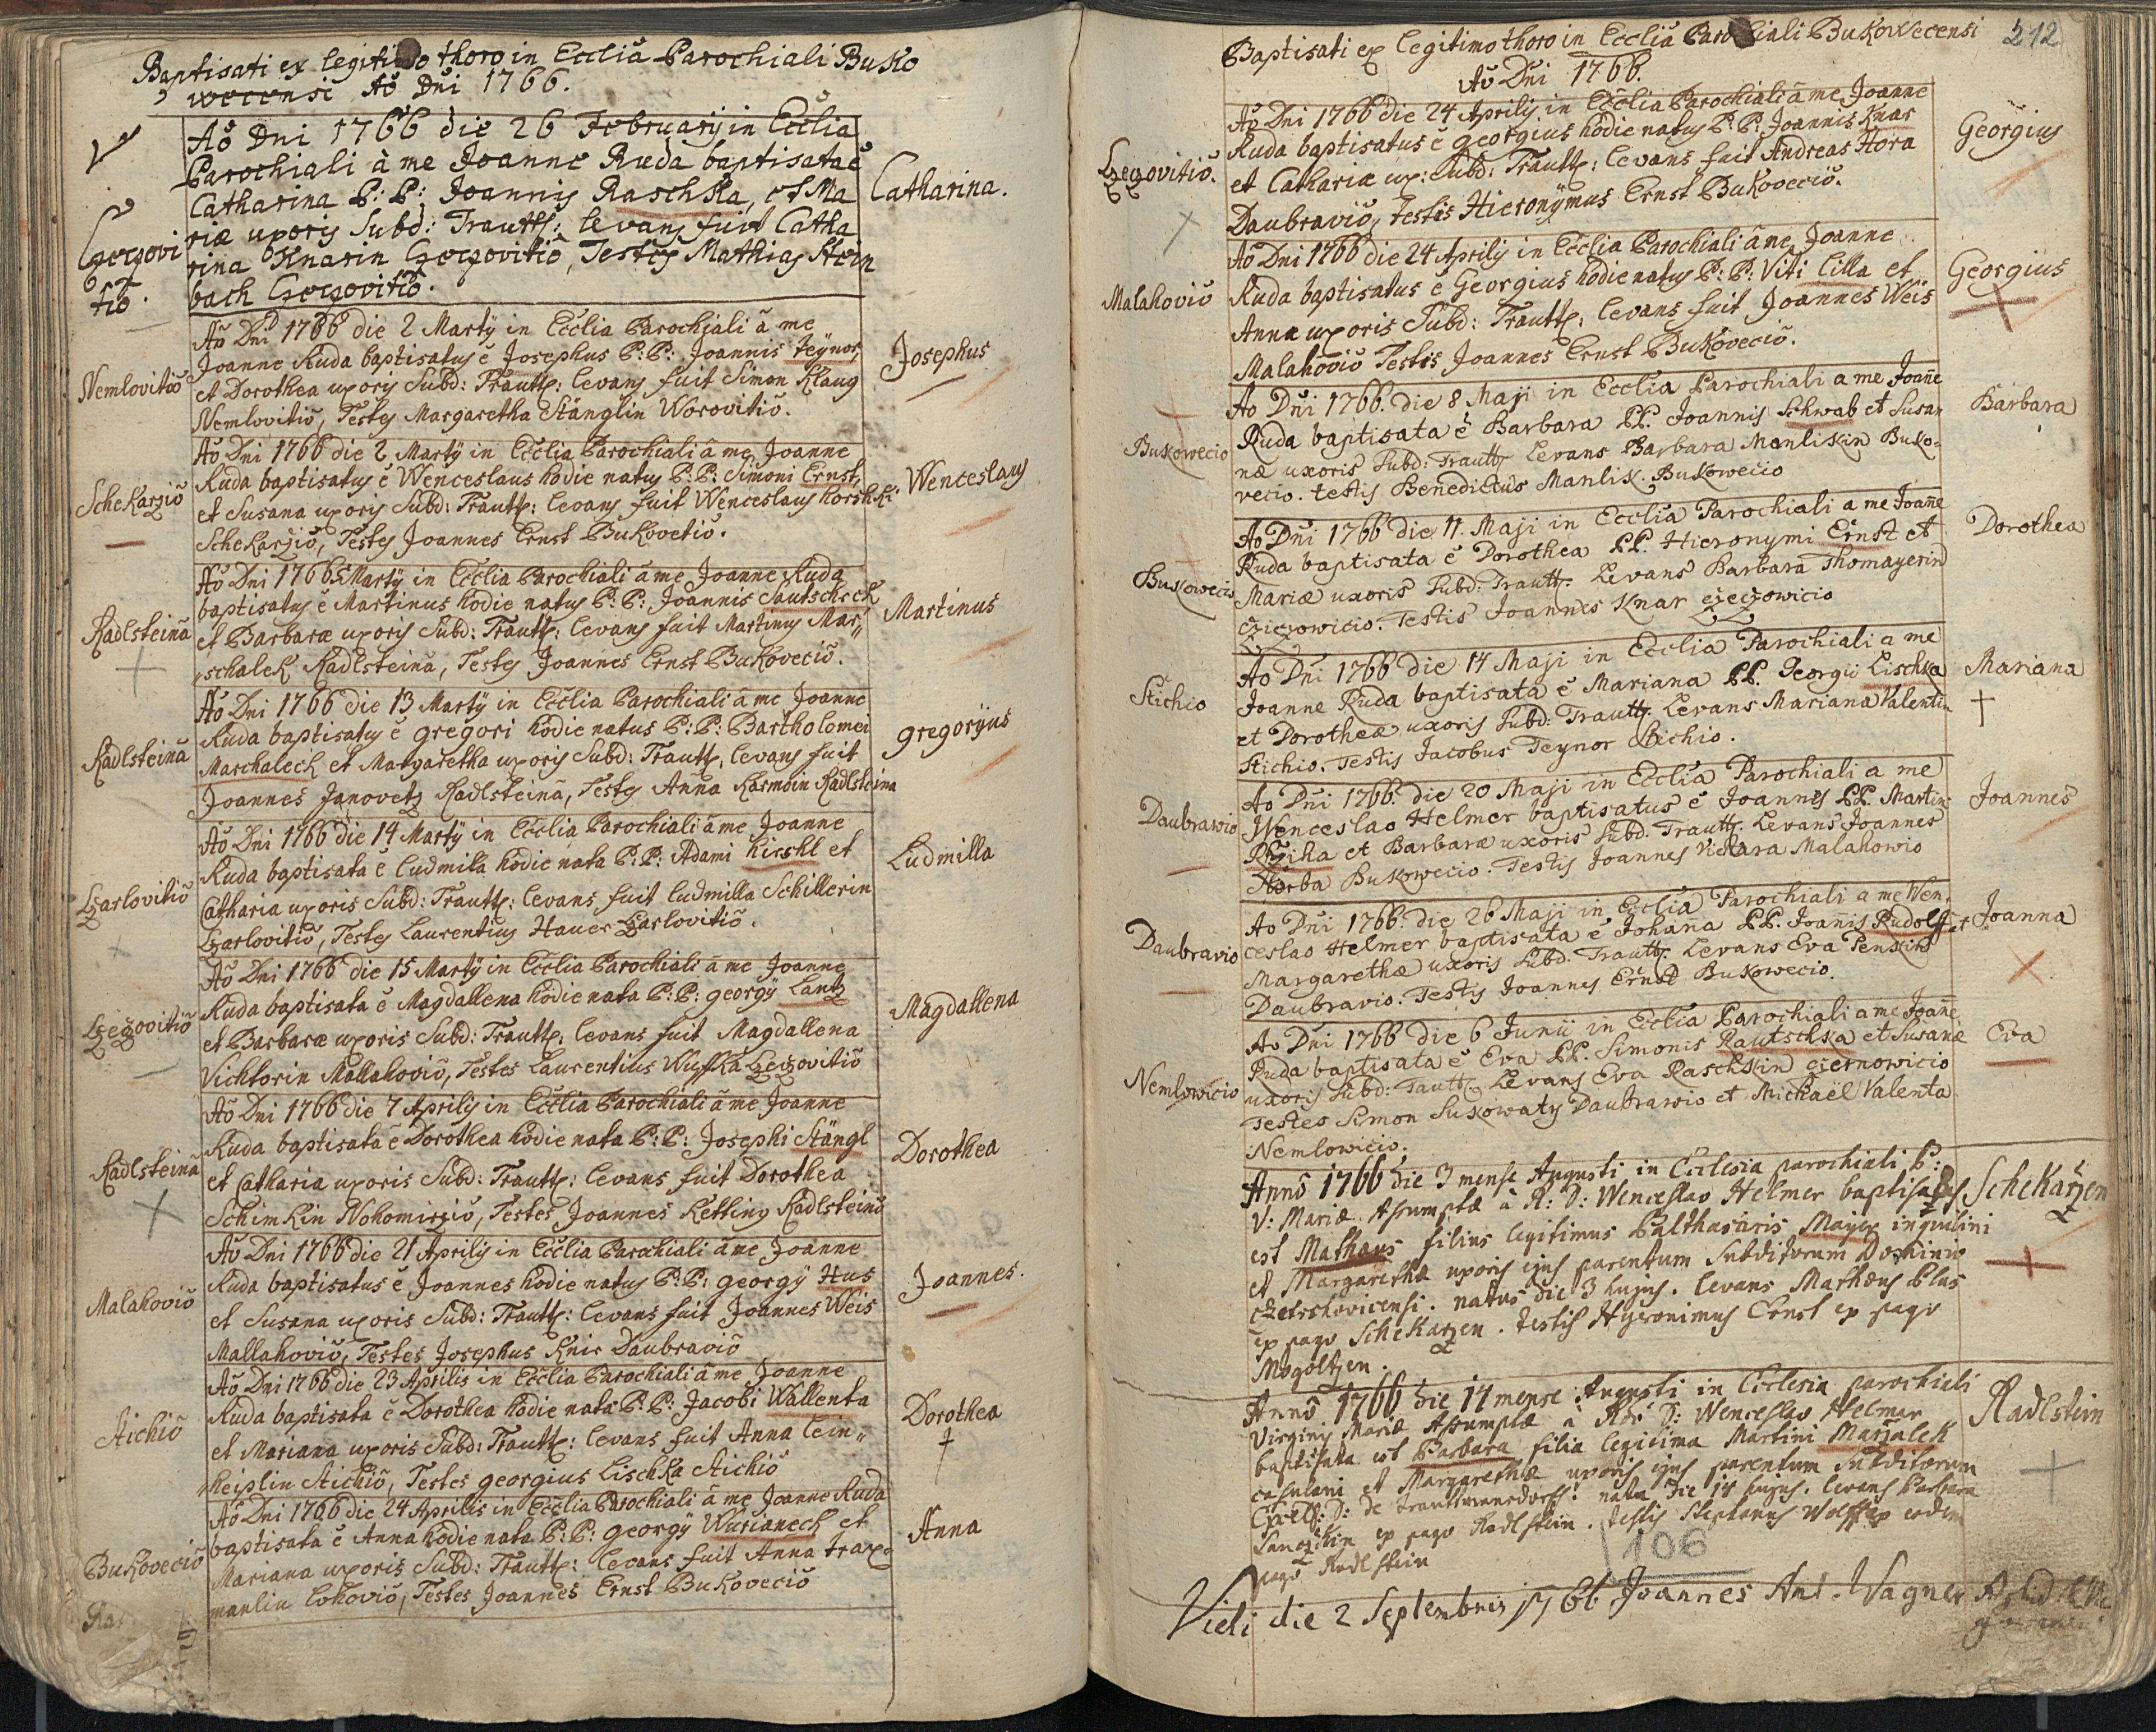 Baptisati ex legitimo thoro in Ecclia Parochiali Buko
wecensi Aō Dni 1766.
Aō Dni 1766 die 26 February in Ecclia
Parochiali à me Joanne Ruda baptisata ē
Catharina P: P: Joannis Raschka, et Ma
riæ uxoris Subd: Trauttz: levans fuit Catha
rina Knarin Czeczovitio, Testes Mathias Stein
bach Czeczovitio.
Czeczovi
tio.
Catharina.
Aō Dni 1766 die 2 Marty in Ecclia Parochiali à me
Joanne Ruda baptisatus ē Josephus P: P: Joannis teÿnor,
et Dorothea uxoris Subd: Trauttz: levans fuit Simon Klaug
Nemlovitio, Testes Margaretha Stänglin Worovitio.
Nemlovitio
Josephus
Aō Dni 1766 die 2 Marty in Ecclia Parochiali à me Joanne
Ruda baptisatus ē Wenceslaus hodie natus P: P: Simoni Ernst,
et Susana uxoris Subd: Trauttz: levans fuit Wenceslaus horshki
Schekarzio, Testes Joannes Ernst Bukovetio.
Schekarzio
Wenceslaus
Aō Dni 1766 5 Marty in Ecclia Parochiali à me Joanne Ruda
baptisatus ē Martinus hodie natus P: P: Joannis Sautscheck
et Barbaræ uxoris Subd: Trauttz: levans fuit Martinus Mar„
„schalek Radlsteina, Testes Joannes Ernst Bukovecio.
Radlsteina
Martinus
Aō Dni 1766 die 13 Marty in Ecclia Parochiali à me Joanne
Ruda baptisatus ē gregori hodie natus P: P: Bartholomei
Marchaleck et Margaretha uxoris Subd: Trauttz: levans fuit
Joannes Janovetz Radlsteina, Testes Anna Karmoin Radlsteina
Radlsteina
gregorÿus
Aō Dni 1766 die 14 Marty in Ecclia Parochiali à me Joanne
Ruda baptisata ē Ludmila hodie nata P: P: Adami hirshl et
Catharia uxoris Subd: Trauttz: levans fuit ludmilla Schillerin
Czarlovitio, Testes Laurentius Hauer Czarlovitio.
Czarlovitio
Ludmilla
Aō Dni 1766 die 15 Marty in Ecclia Parochiali à me Joanne
Ruda baptisata ē Magdallena hodie nata P: P: georgÿ Lantz
et Barbaræ uxoris Subd: Trauttz: levans fuit Magdallena
Vichtorin Mallahovio, Testes Laurentius Wuffka Czeczovitio
Czeczovitio
Magdallena
Aō Dni 1766 die 7 Aprilis in Ecclia Parochiali à me Joanne
Ruda baptisata ē Dorothea hodie nata P: P: Josephi Stängl
et Catharia uxoris Subd: Trauttz: levans fuit Dorothea
Schimkin Nohomirzio, Testes Joannes Ketting Radlsteina
Radlsteina
Dorothea
Aō Dni 1766 die 21 Aprilis in Ecclia Parochiali à me Joanne
Ruda baptisatus ē Joannes hodie natus P: P: georgÿ Hus
et Susana uxoris Subd: Trauttz: levans fuit Joannes Weis
Mallahovio, Testes Josephus Knir Daubravio
Malahovio
Joannes.
Aō Dni 1766 die 23 Aprilis in Ecclia Parochiali à me Joanne
Ruda baptisata ē Dorothea hodie nata P: P: Jacobi Wallenta
et Mariana uxoris Subd: Trauttz: levans fuit Anna lein„
„heislin Stichio, Testes georgius Lischka Stichio
Stichio
Dorothea
Aō Dni 1766 die 24 Aprilis in Ecclia Parochiali à me Joanne Ruda
baptisata ē Anna hodie nata P: P: georgÿ Wurianech et
Mariana uxoris Subd: Trauttz: levans fuit Anna trax„
manlin lohovio, Testes Joannes Ernst Bukovecio
Bukovecio
Anna
212
Baptisati ex legitimo thoro in Ecclia Parochiali Bukowecensi
Aō Dni 1766.
Aō Dni 1766 die 24 Aprilis in Ecclia Parochiali à me Joanne
Ruda baptisatus ē georgius hodie natus P: P: Joannis Knar
et Cathariæ ux: Subd: Trauttz: levans fuit Andreas Hora
Daubravio, testis Hieronÿmus Ernst Bukovecio.
Czeczovitio.
Georgius
Aō Dni 1766 die 24 Aprilis in Ecclia Parochiali à me Joanne
Ruda baptisatus ē Georgius hodie natus P: P: Viti Cilla et
Annæ uxoris Subd: Trauttz: levans fuit Joannes Weis
Malahovio Testis Joannes Ernst Bukovecio.
Malahovio
Georgius
Ao Dni 1766. die 8 Maji in Ecclia Parochiali a me Joañe
Ruda baptisata ē Barbara PP. Joannis Schwab et Susan
næ uxoris Subd: Trauttz Levans Barbara Manliskin Buko-
vecio. testis Benedictus Manlik. Bukowecio
Bukowecio
Barbara
Ao Dni 1766 die 11. Maji in Ecclia Parochiali a me Joañe
Ruda baptisata ē Dorothea PP. Hieronymi Ernst et
Mariæ uxoris Subd: Trauttz. Levans Barbara Thomayerin
Cziczowicio. Testis Joannes Knar czeczowicio
Bukowecio
Dorothea
Ao Dni 1766 die 14 Maji in Ecclia Parochiali a me
Joanne Ruda baptisata ē Mariana PP. Georgii Lischka
et Dorotheæ uxoris Subd: Trauttz. Levans Mariana Valentin
Stichio. Testis Jacobus Teynor Stichio.
Stichio
Mariana
Ao Dni 1766. die 20 Maji in Ecclia Parochiali a me
Wenceslao Helmer baptisatus ē Joannes PP. Martin
Rziha et Barbaræ uxoris Subd. Trauttz. Levans Joannes
Horba Bukowecio. Testis Joannes Victara Malahowio
Daubrawio
Joannes
Ao Dni 1766. die 26 Maji in Ecclia Parochiali a me Wen
ceslao Helmer baptisata ē Johaña PP. Joañis Rudolff et
Margarethæ uxoris Subd. Trauttz. Levans Eva Penskin
Daubravio. Testis Joannes Ernst Bukowecio.
Daubravio
Joanna
Ao Dni 1766 die 6 Junii in Ecclia Parochiali a me Joañe
Ruda baptisata ē Eva PP. Simonis Rautschka et Susañæ
uxoris Subd: Tauttz. Levans Eva Raschkin ciernowicio
Testes Simon Sukowaty Daubrawio et Michaël Valenta
Nemlowicio.
Nemlowicio
Eva
Annō 1766 die 3 mense Augusti in Ecclesia parochiali B:
V: Mariæ Assumptæ à R: D: Wenceslao Helmer baptisatus
est Mathæus filius legitimus Balthasaris Mayer inquilini
et Margarethæ uxoris ejus parentum Subditorum Dominio
czetschovicensi. natus die 3 hujus. levans Mathæus Blus
ex pago Schekarzen. testis Hyeronimus Ernst ex pago
Mogoltzen.
Schekarzen
Annō 1766 die 14 mense Augusti in Ecclesia parochiali
Virginis Mariæ Assumptæ à Rdo D: Wenceslao Helmer
baptisata est Barbara filia legitima Martini Marzalek
casulani et Margarethæ uxoris ejus parentum Subditorum
Excels: D: de Trauttmansdorff. nata die 14 hujus. levans Barbara
Lanczikin ex pago Radlstein. testis Stephanus Wolff ex eodem
pago Radlstein
Radlstein
106
Vidi die 2 Septembris 1766 Joannes Ant. Wagner